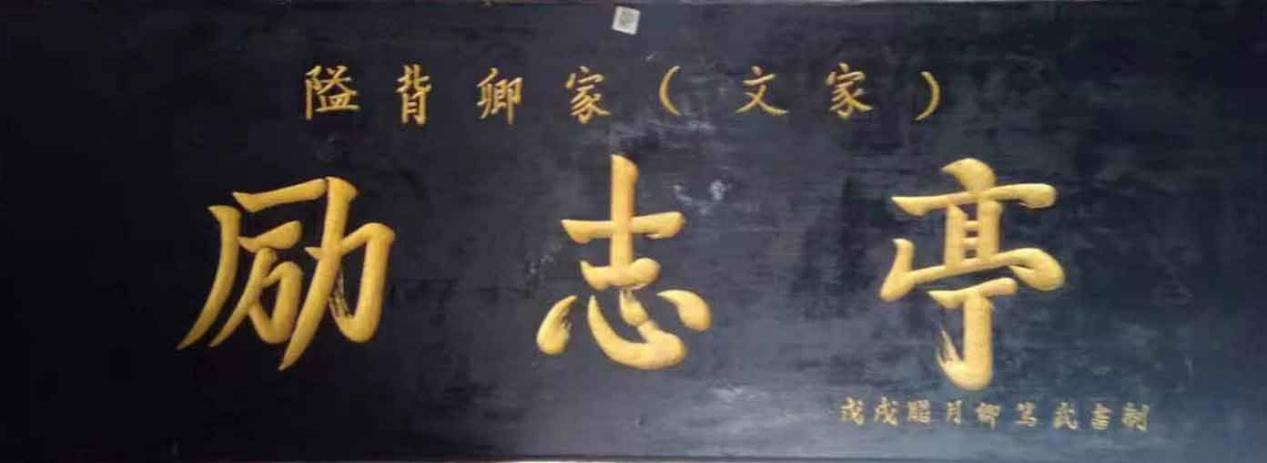 隘背卿家（文家）
励志亭
戊戌腊月卿笃武书制